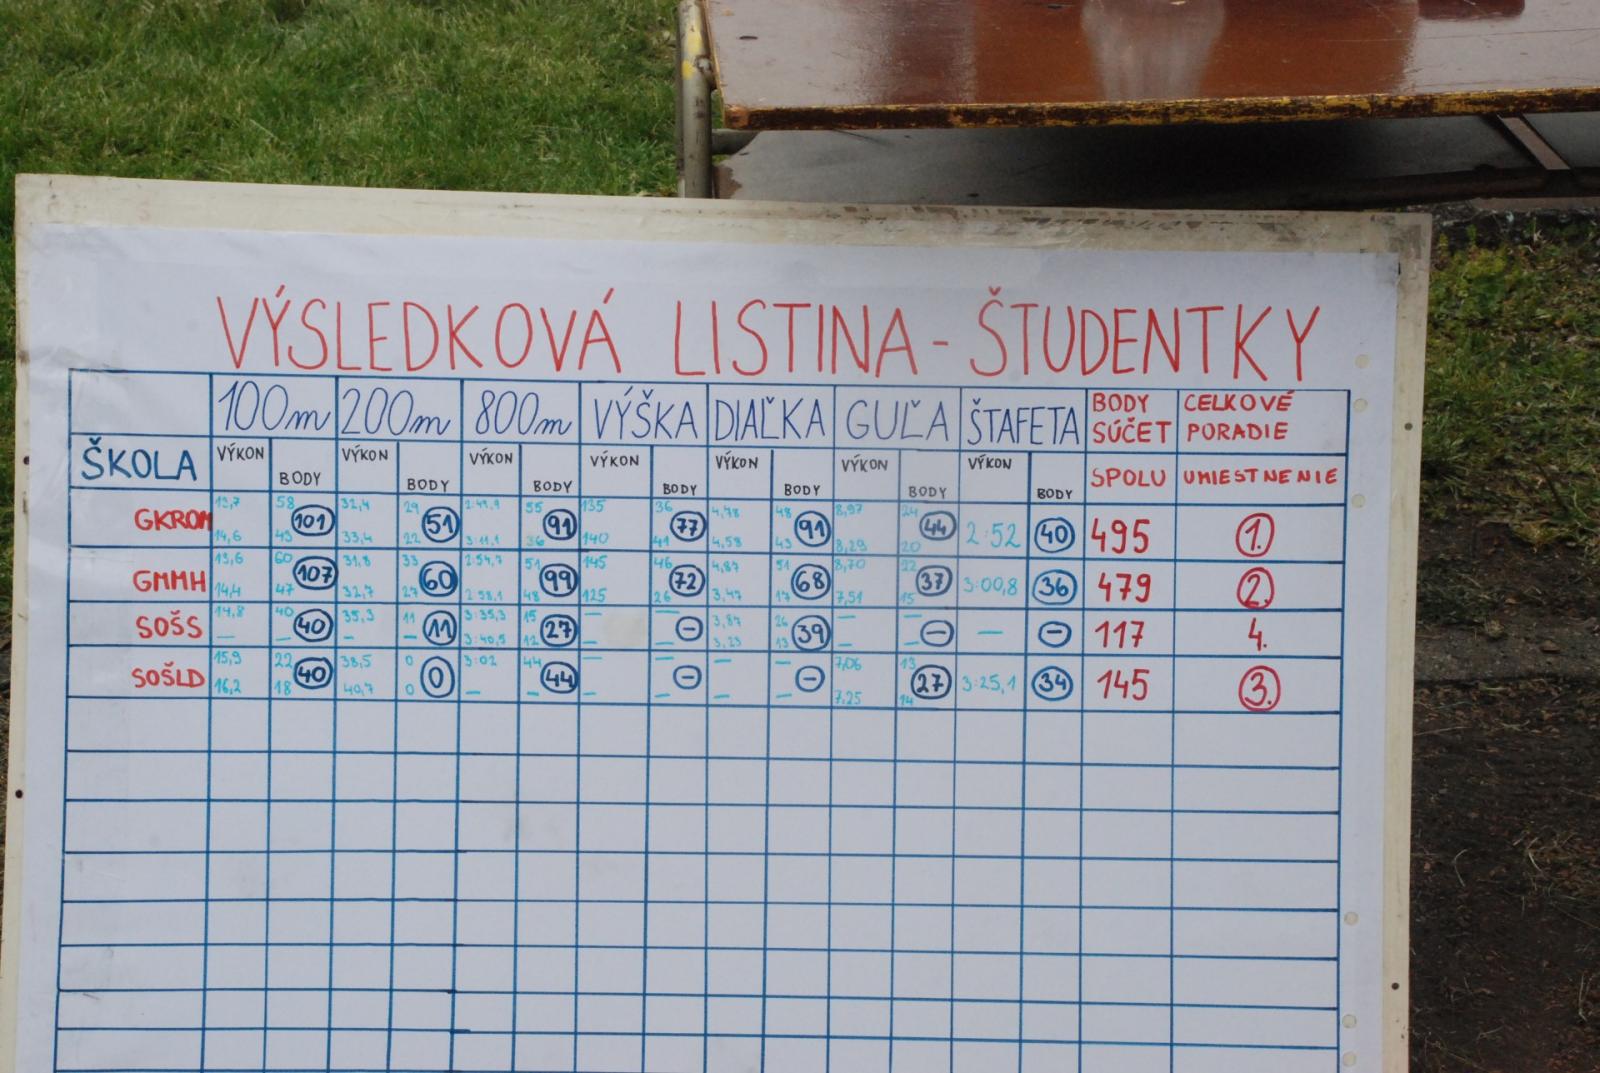 VÝSLEDKOVÁ LISTINA - ŠTUDENTKY
100m 200m 800m VÝŠKA DIAĽKA GUĽA ŠTAFETA BODY SÚČET CELKOVÉ PORADIE
ŠKOLA VÝKON BODY VÝKON BODY VÝKON BODY VÝKON BODY VÝKON BODY VÝKON BODY VÝKON BODY SPOLU UMIESTNENIE
13,7 58 32,4 29 2:49,9 55 135 36 4,78 48 8,97 24
GKROM 101 51 91 77 91 44 2:52 40 495 1.
14,6 43 33,4 22 3:11,1 36 140 41 4,58 43 8,29 20
13,6 60 31,8 33 2:54,7 51 145 46 4,87 51 8,70 22
GMMH 107 60 99 72 68 37 3:00,8 36 479 2.
14,4 47 32,7 27 2:58,1 48 125 26 3,47 17 7,51 15
14,8 40 35,3 11 3:35,3 15 — — 3,87 26 — —
SOŠS 40 11 27 - 39 - — - 117 4.
— — - — 3:40,5 12 — — 3,23 13 — —
15,9 22 38,5 0 3:02 44 — — — — 7,06 13
SOŠLD 40 0 44 - - 27 3:25,1 34 145 3.
16,2 18 40,7 0 — - — — — — 7,25 14